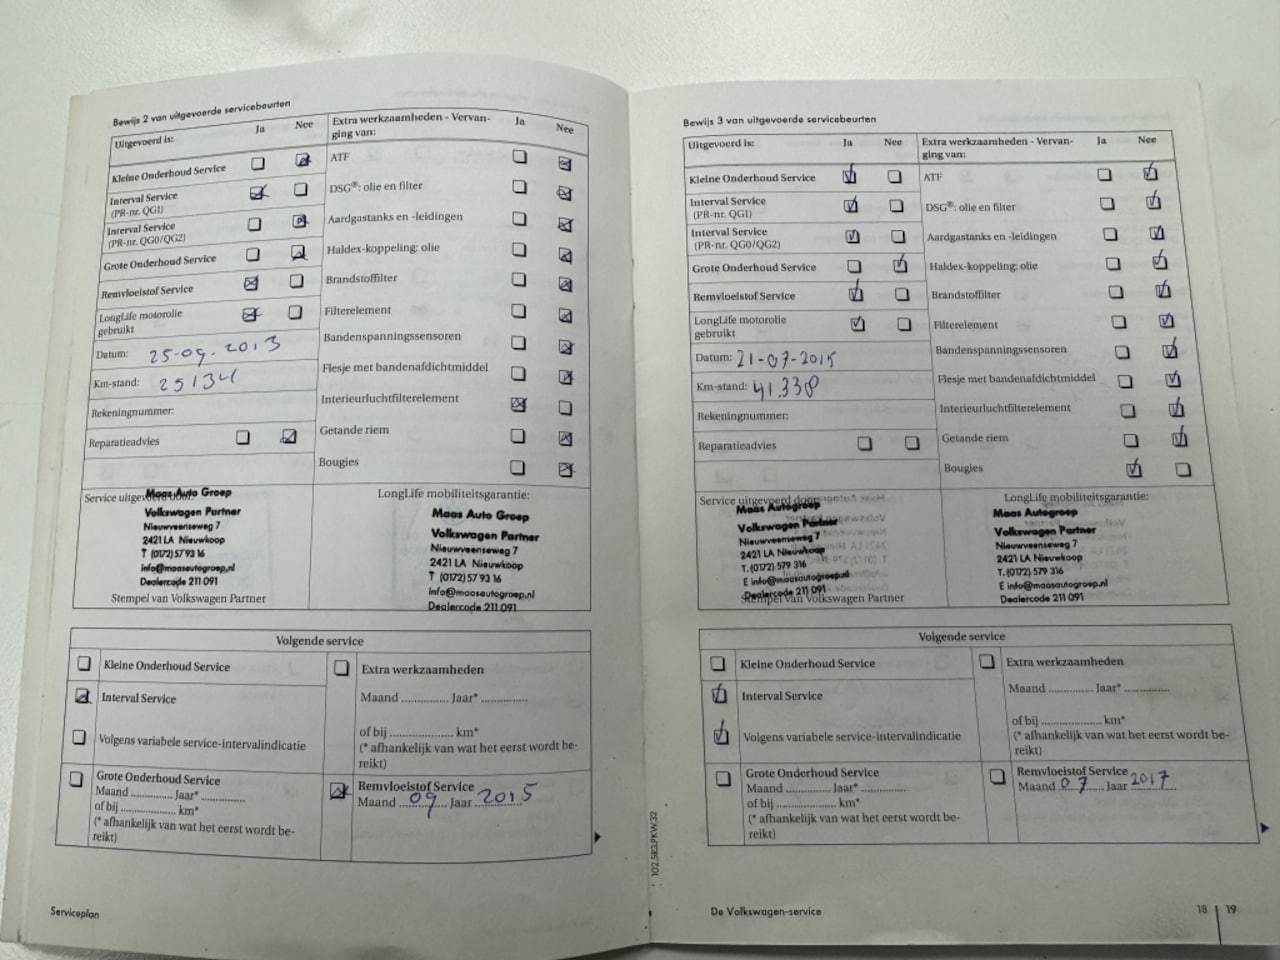 Bewijs 2 van uitgevoerde servicebeurten
Uitgevoerd is: Ja Nee
Kleine Onderhoud Service
Interval Service
(PR-nr. QG1)
Interval Service
(PR-nr. QG0/QG2)
Grote Onderhoud Service
Remvloeistof Service
LongLife motorolie
gebruikt
Datum: 25-09-2013
Km-stand: 25134
Rekeningnummer:
Reparatieadvies
Extra werkzaamheden - Vervan-
ging van: Ja Nee
ATF
DSG®: olie en filter
Aardgastanks en -leidingen
Haldex-koppeling: olie
Brandstoffilter
Filterelement
Bandenspanningssensoren
Flesje met bandenafdichtmiddel
Interieurluchtfilterelement
Getande riem
Bougies
Service uitgevoerd door:
Maas Auto Groep
Volkswagen Partner
Nieuwveenseweg 7
2421 LA Nieuwkoop
T (0172) 57 93 16
info@maasautogroep.nl
Dealercode 211 091
Stempel van Volkswagen Partner
LongLife mobiliteitsgarantie:
Maas Auto Groep
Volkswagen Partner
Nieuwveenseweg 7
2421 LA Nieuwkoop
T (0172) 57 93 16
info@maasautogroep.nl
Dealercode 211 091
Volgende service
Kleine Onderhoud Service
Interval Service
Volgens variabele service-intervalindicatie
Grote Onderhoud Service
Maand .............. Jaar* ..............
of bij ...................... km*
(* afhankelijk van wat het eerst wordt be-
reikt)
Extra werkzaamheden
Maand ............... Jaar* ...............
of bij ..................... km*
(* afhankelijk van wat het eerst wordt be-
reikt)
Remvloeistof Service
Maand 09 Jaar 2015
Serviceplan
102.5R3.PKW.32
Bewijs 3 van uitgevoerde servicebeurten
Uitgevoerd is: Ja Nee
Kleine Onderhoud Service
Interval Service
(PR-nr. QG1)
Interval Service
(PR-nr. QG0/QG2)
Grote Onderhoud Service
Remvloeistof Service
LongLife motorolie
gebruikt
Datum: 21-07-2015
Km-stand: 41.338
Rekeningnummer:
Reparatieadvies
Extra werkzaamheden - Vervan-
ging van: Ja Nee
ATF
DSG®: olie en filter
Aardgastanks en -leidingen
Haldex-koppeling: olie
Brandstoffilter
Filterelement
Bandenspanningssensoren
Flesje met bandenafdichtmiddel
Interieurluchtfilterelement
Getande riem
Bougies
Service uitgevoerd door:
Maas Autogroep
Volkswagen Partner
Nieuwveenseweg 7
2421 LA Nieuwkoop
T. (0172) 579 316
E info@maasautogroep.nl
Dealercode 211 091
Stempel van Volkswagen Partner
LongLife mobiliteitsgarantie:
Maas Autogroep
Volkswagen Partner
Nieuwveenseweg 7
2421 LA Nieuwkoop
T. (0172) 579 316
E info@maasautogroep.nl
Dealercode 211 091
Volgende service
Kleine Onderhoud Service
Interval Service
Volgens variabele service-intervalindicatie
Grote Onderhoud Service
Maand .............. Jaar* ..............
of bij ...................... km*
(* afhankelijk van wat het eerst wordt be-
reikt)
Extra werkzaamheden
Maand .............. Jaar* ..............
of bij ..................... km*
(* afhankelijk van wat het eerst wordt be-
reikt)
Remvloeistof Service
Maand 07 Jaar 2017
De Volkswagen-service
18 | 19